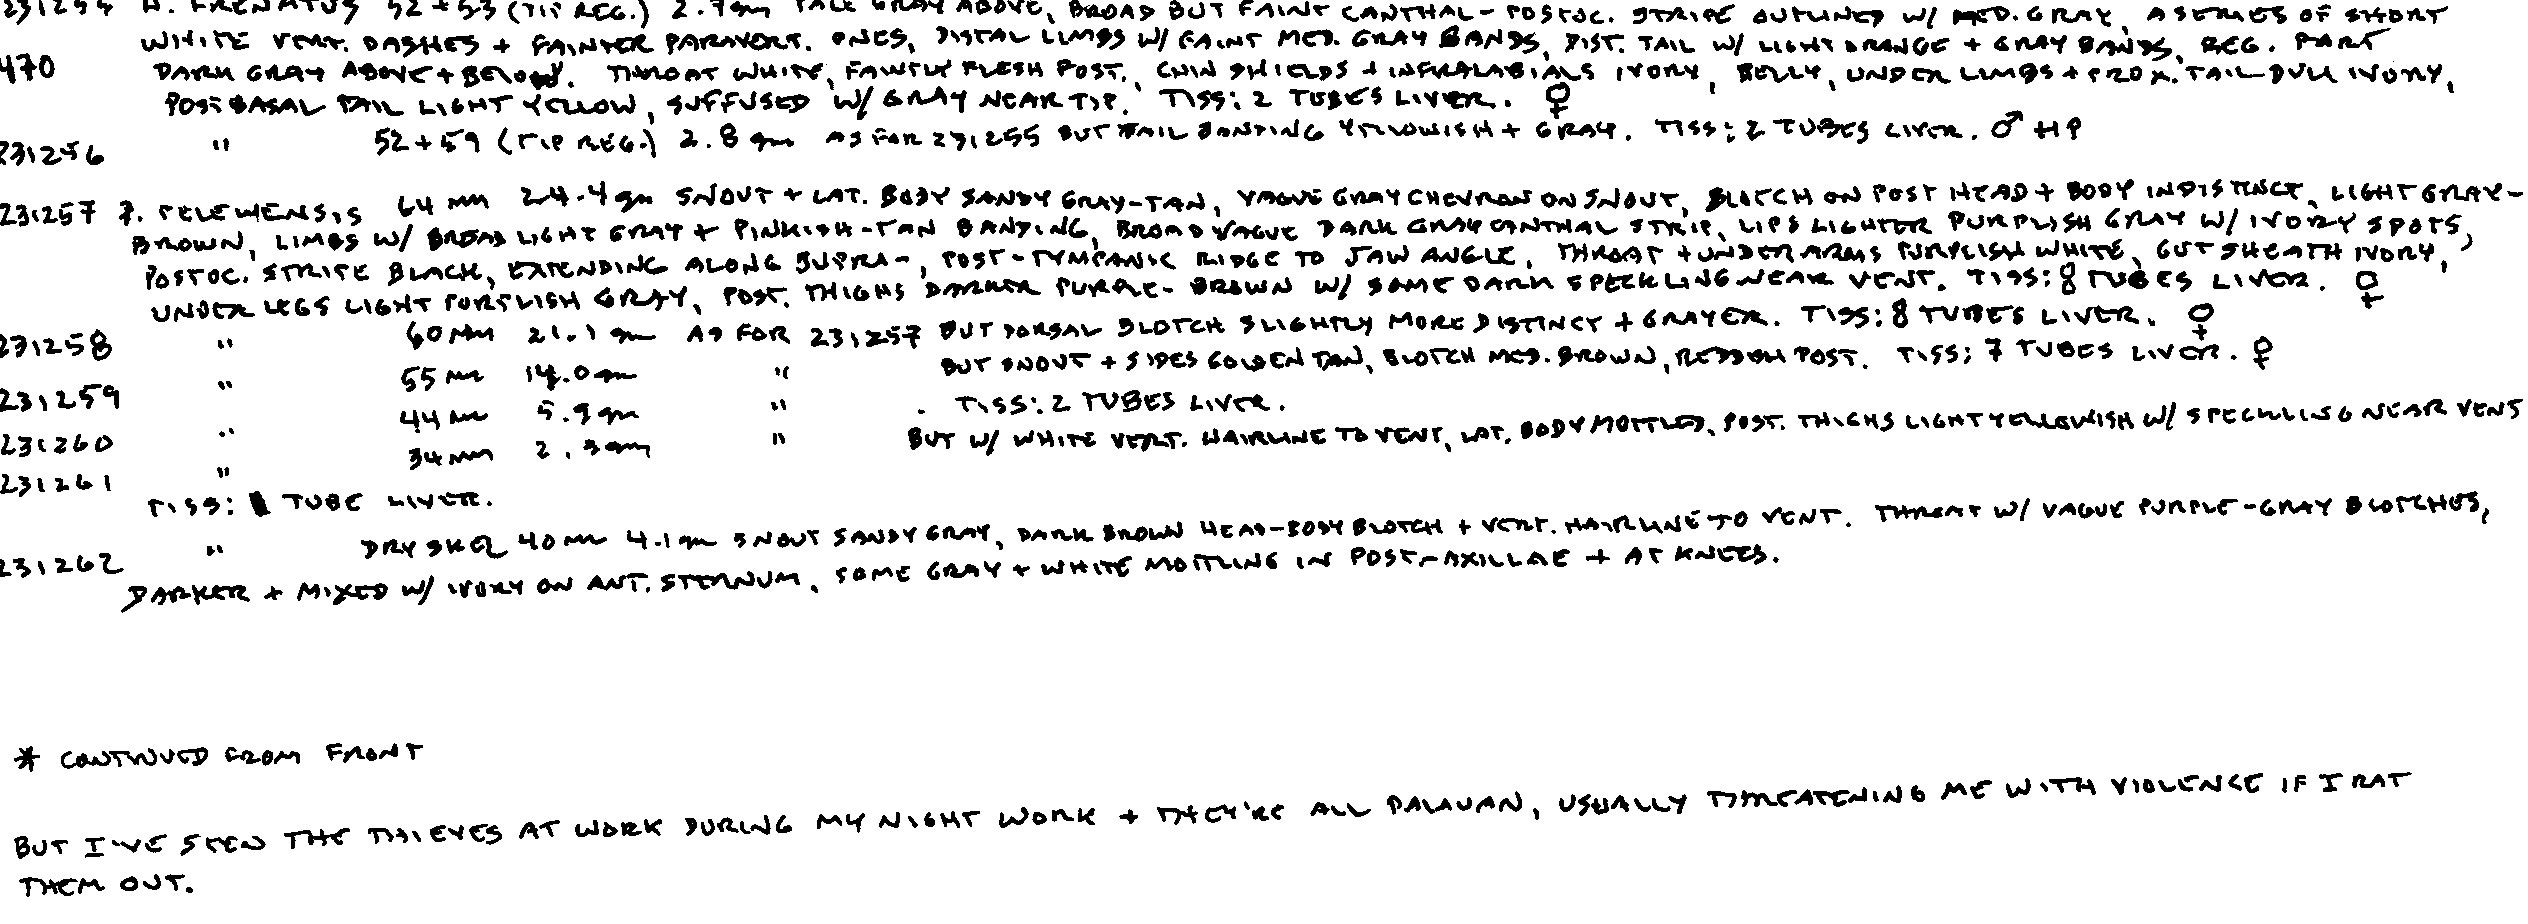 231255 H. FRENATUS 52+53 (TIP REG.) 2.7gm PALE GRAY ABOVE, BROAD BUT FAINT CANTHAL-POSTOC. STRIPE OUTLINED W/ MED. GRAY, A SERIES OF SHORT
WHITE VERT. DASHES + FAINTER PARAVERT. ONES, DISTAL LIMBS W/ FAINT MED. GRAY BANDS, DIST. TAIL W/ LIGHT ORANGE + GRAY BANDS, REG. PART
470 DARK GRAY ABOVE + BELOW. THROAT WHITE, FAINTLY FLESH POST., CHIN SHIELDS + INFRALABIALS IVORY, BELLY, UNDER LIMBS + PROX. TAIL DULL IVORY,
POSTBASAL TAIL LIGHT YELLOW, SUFFUSED W/ GRAY NEAR TIP. TISS: 2 TUBES LIVER. ♀
231256 " 52+59 (TIP REG.) 2.8 gm AS FOR 231255 BUT TAIL BANDING YELLOWISH + GRAY. TISS: 2 TUBES LIVER. ♂ HP
231257 P. PELEWENSIS 64 mm 24.4 gm SNOUT + LAT. BODY SANDY GRAY-TAN, VAGUE GRAY CHEVRON ON SNOUT, BLOTCH ON POST HEAD + BODY INDISTINCT, LIGHT GRAY-
BROWN, LIMBS W/ BROAD LIGHT GRAY + PINKISH-TAN BANDING, BROAD VAGUE DARK GRAY CANTHAL STRIP, LIPS LIGHTER PURPLISH GRAY W/ IVORY SPOTS,
POSTOC. STRIPE BLACK, EXTENDING ALONG SUPRA-, POST-TYMPANIC RIDGE TO JAW ANGLE, THROAT + UNDER ARMS PURPLISH WHITE, GUT SHEATH IVORY,
UNDER LEGS LIGHT PURPLISH GRAY, POST. THIGHS DARKER PURPLE-BROWN W/ SOME DARK SPECKLING NEAR VENT. TISS: 8 TUBES LIVER. ♀
231258 " 60 mm 21.1 gm AS FOR 231257 BUT DORSAL BLOTCH SLIGHTLY MORE DISTINCT + GRAYER. TISS: 8 TUBES LIVER. ♀
231259 " 55 mm 14.0 gm " BUT SNOUT + SIDES GOLDEN TAN, BLOTCH MED. BROWN, REDDISH POST. TISS: 7 TUBES LIVER. ♀
231260 " 44 mm 5.9 gm " . TISS: 2 TUBES LIVER.
231261 " 34 mm 2.3 gm " BUT W/ WHITE VERT. HAIRLINE TO VENT, LAT. BODY MOTTLED, POST. THIGHS LIGHT YELLOWISH W/ SPECKLING NEAR VENT
TISS: 1 TUBE LIVER.
231262 " DRY SKEL 40 mm 4.1 gm SNOUT SANDY GRAY, DARK BROWN HEAD-BODY BLOTCH + VERT. HAIRLINE TO VENT. THROAT W/ VAGUE PURPLE-GRAY BLOTCHES,
DARKER + MIXED W/ IVORY ON ANT. STERNUM, SOME GRAY + WHITE MOTTLING IN POST-AXILLAE + AT KNEES.
* CONTINUED FROM FRONT
BUT I'VE SEEN THE THIEVES AT WORK DURING MY NIGHT WORK + THEY'RE ALL PALAUAN, USUALLY THREATENING ME WITH VIOLENCE IF I RAT
THEM OUT.